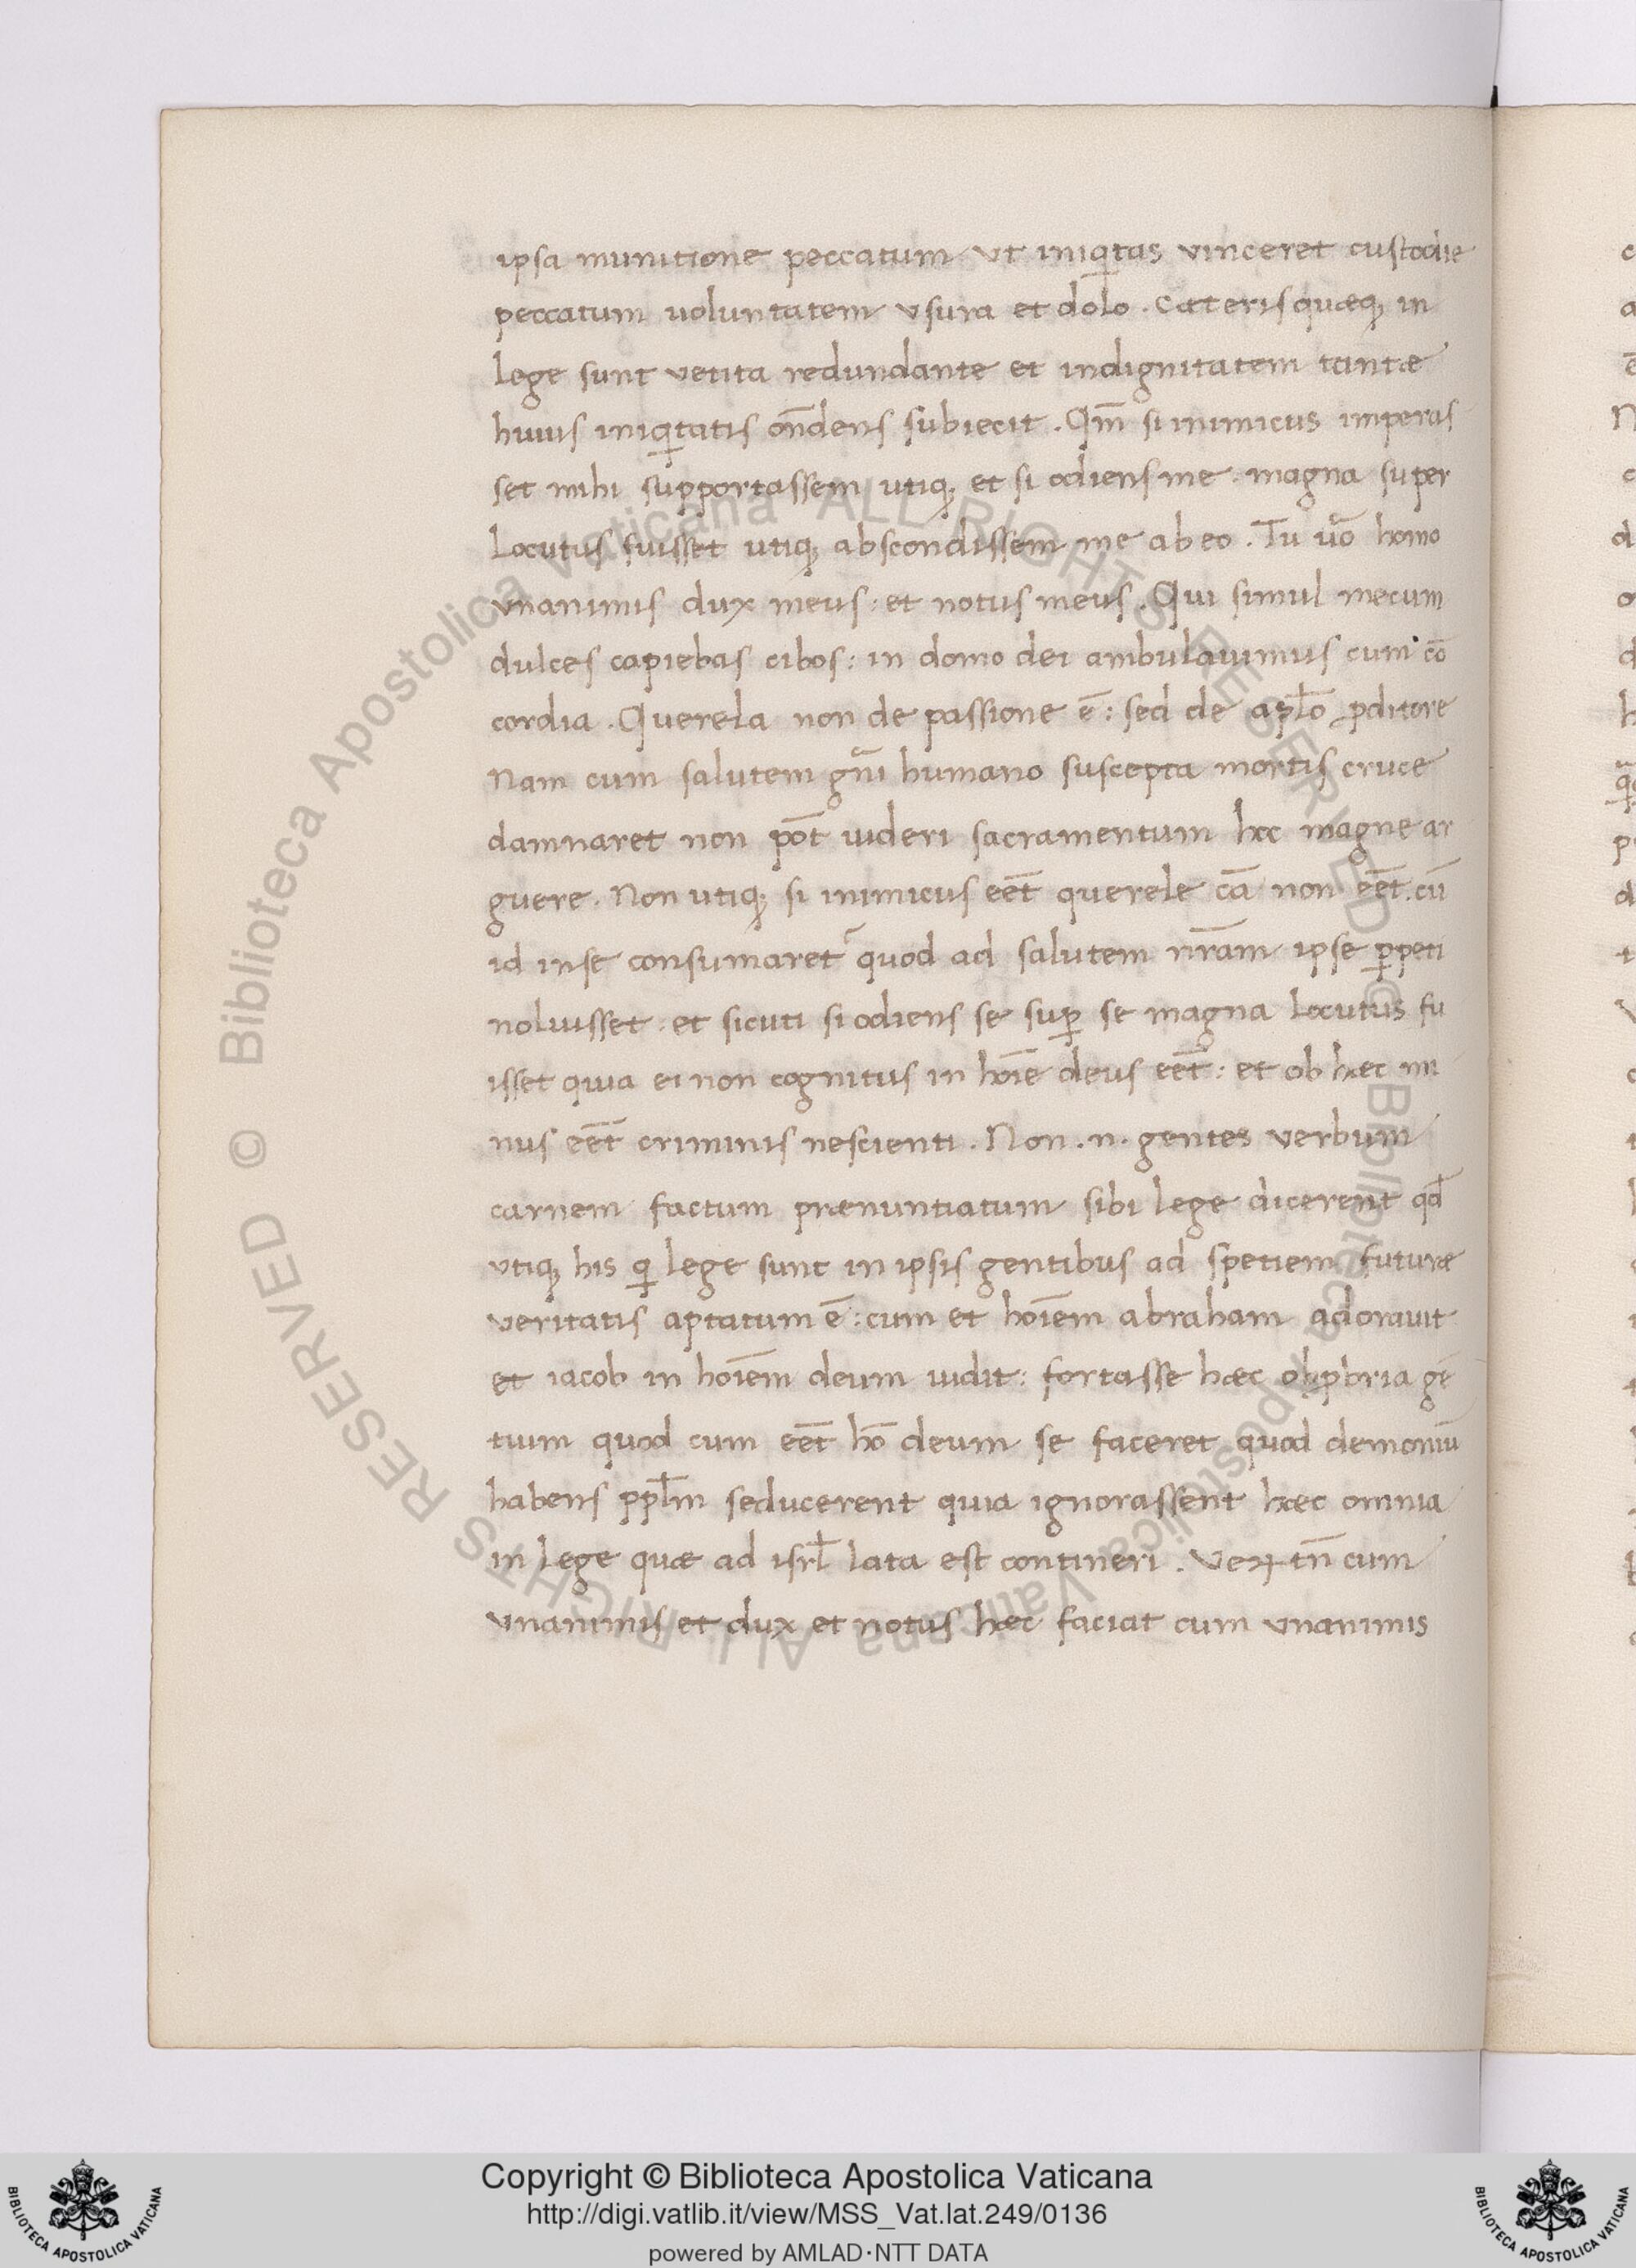 ipsa munitione peccatum ut iniq̨tas vinceret custodiie
peccatum uoluntatem vsura et dolo. cæterisquæq; in
lege sunt vetita redundante et indignitatem tantæ
huius iniq̨tatis on̄dens subiecit. Qm̄ si inimicus imperas
set mihi supportassem utiq; et si odiens me. magna super
Locutus fuisset utiq; abscondissem me ab eo. Tu uoᷓ homo
vnanimis dux meus: et notus meus. Qui simul mecum
dulces capiebas cibos: in domo dei ambulauimus cum cō
cordia. Querela non de passione ē: sed de apł̄o ꝓditore
Nam cum salutem gn̄i humano suscepta mortis cruce
damnaret non pōt uideri sacramentum hęc magne ar
guere. Non utiq; si inimicus eēt querele cā non eēt. cū
id inse consumaret quod ad salutem nr̄am ipse ꝑpeti
noluisset. et sicuti si odiens se suꝑ se magna locutus fu
isset quia ei non cognitus in hoīe deus eēt: et ob hæc mi
nus eēt criminis nescienti. Non .n. gentes verbum
carnem factum prænuntiatum sibi lege dicerent qđ
vtiq; his q̨ lege sunt in ipsis gentibus ad spetiem futuræ
veritatis aptatum ē: cum et hoīem abraham adorauit
et iacob in hoīem deum uidit: fortasse hæc obpbria gē
tium quod cum eēt hō deum se faceret quod demoniū
habens ppł̄m seducerent quia ignorassent hæc omnia
in lege quæ ad isrł lata est contineri. Veꝝ tn̄ cum
vnanimis et dux et notus hæc faciat cum vnanimis
Copyright © Biblioteca Apostolica Vaticana
http://digi.vatlib.it/view/MSS_Vat.lat.249/0136
powered by AMLAD·NTT DATA
BIBLIOTECA APOSTOLICA VATICANA
BIBLIOTECA APOSTOLICA VATICANA
© Biblioteca Apostolica Vaticana ALL RIGHTS RESERVED © Biblioteca Apostolica Vaticana ALL RIGHTS RESERVED